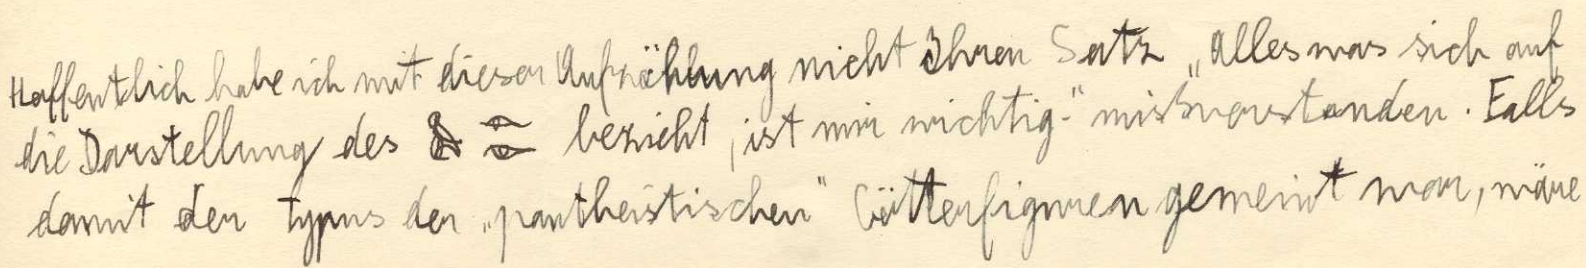 Hoffentlich habe ich mit dieser Aufzählung nicht Ihren Satz „Alles was sich auf
die Darstellung des bezieht, ist mir wichtig-“ missverstanden. Falls
damit der Typus der „pantheistischen“ Götterfiguren gemeint war, wäre